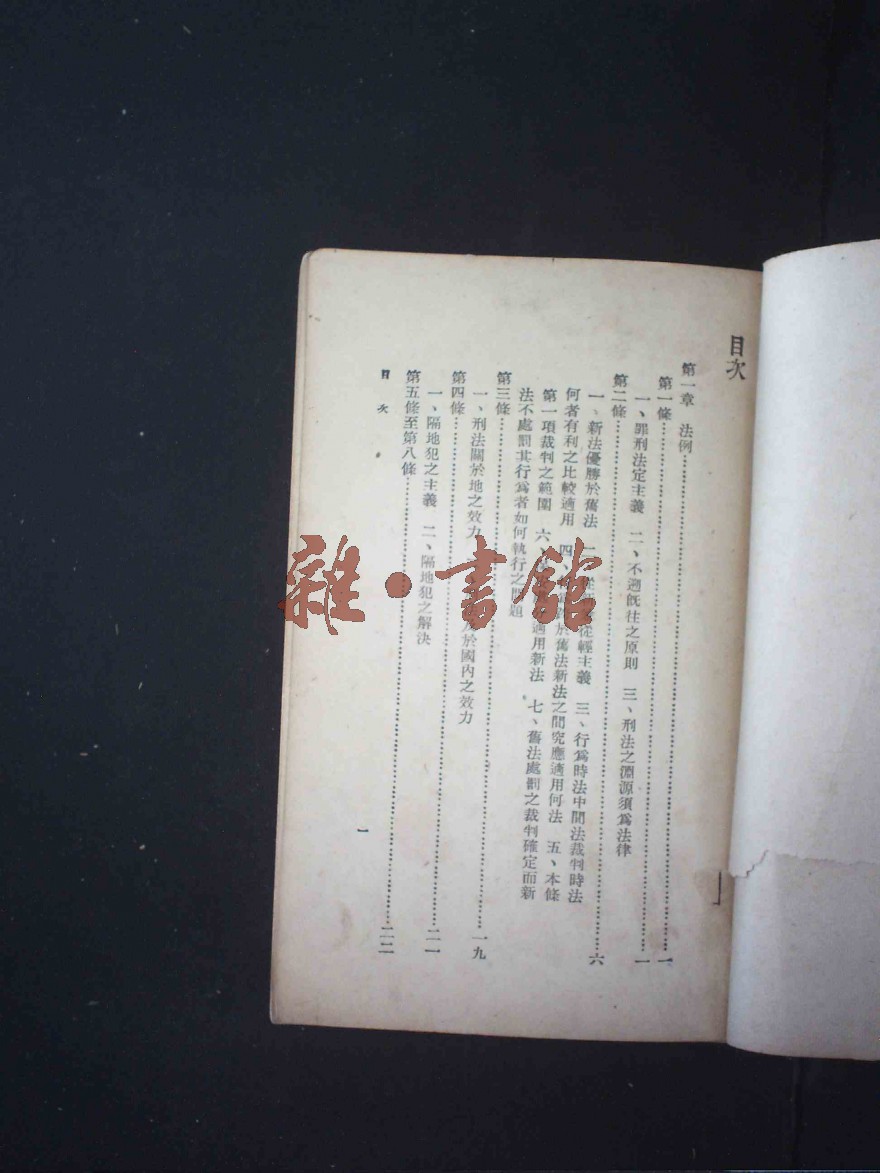 目次
第一章 法例……一
第一條……一
一、罪刑法定主義 二、不遡旣往之原則 三、刑法之淵源須爲法律
第二條……六
一、新法優勝於舊法 二、從輕主義 三、行爲時法中間法裁判時法
何者有利之比較適用 四、於舊法新法之間究應適用何法 五、本條
第一項裁判之範圍 六、適用新法 七、舊法處罰之裁判確定而新
法不處罰其行爲者如何執行之問題
第三條……一九
一、刑法關於地之效力 於國內之效力
第四條……二一
一、隔地犯之主義 二、隔地犯之解決
第五條至第八條……二二
目次
一
雜·書館